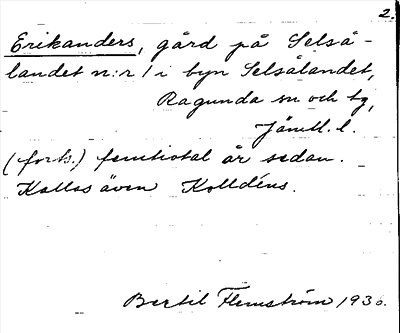 2.
Erikanders, gård på Selså-
landet n:r 1 i byn Selsålandet,
Ragunda sn och tg,
Jämtl. l.
(forts.) femtiotal år sedan.
Kallas även Kolldéns.
Bertil Flemström 1936.